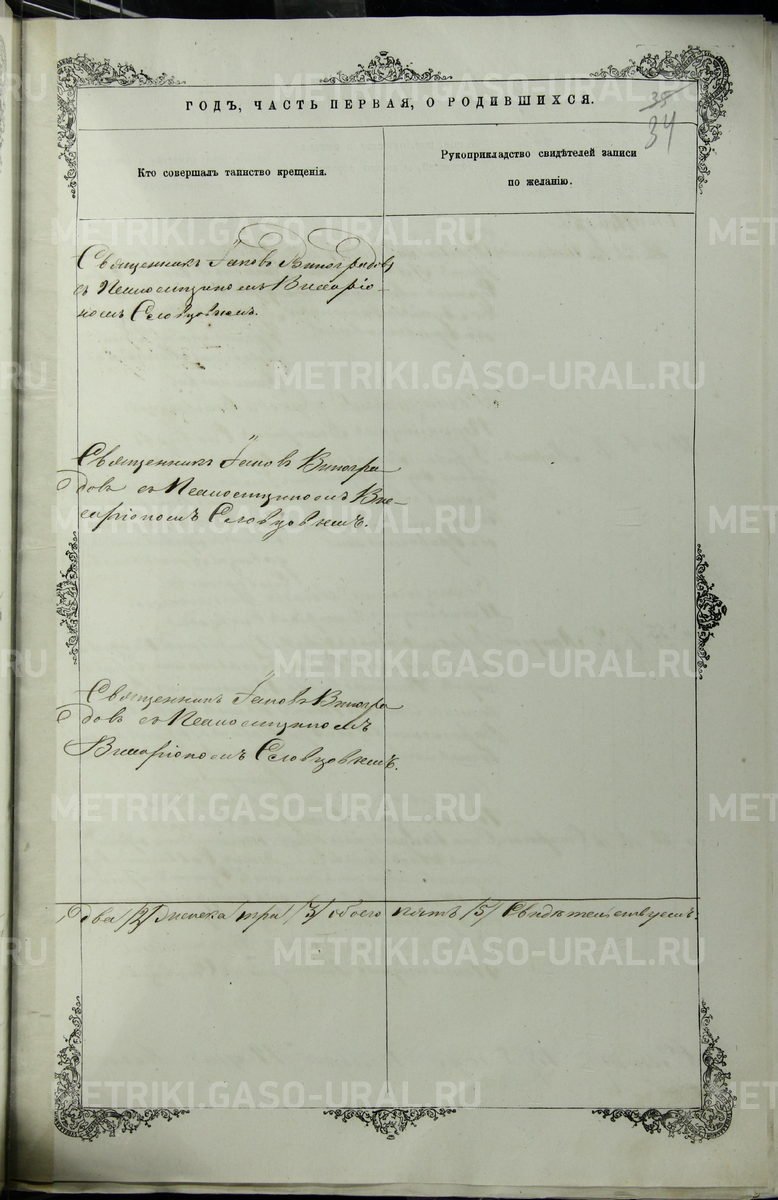 ГОДЪ, ЧАСТЬ ПЕРВАЯ, О РОДИВШИХСЯ.
35
34
Кто совершалъ таинство крещенія.
Рукоприкладство свидѣтелей записи
по желанію.
Священникъ Іаковъ Виноградовъ
съ Псаломщикомъ Виссаріо-
номъ Словцовымъ.
Священникъ Іаковъ Виногра
довъ съ Псаломщикомъ Вис-
саріономъ Словцовымъ.
Священникъ Іаковъ Виногра
довъ съ Псаломщикомъ
Виссаріономъ Словцовымъ.
два /2/ женска три /3/ обоего пять /5/ Свидѣтельствуемъ.
METRIKI.GASO-URAL.RU